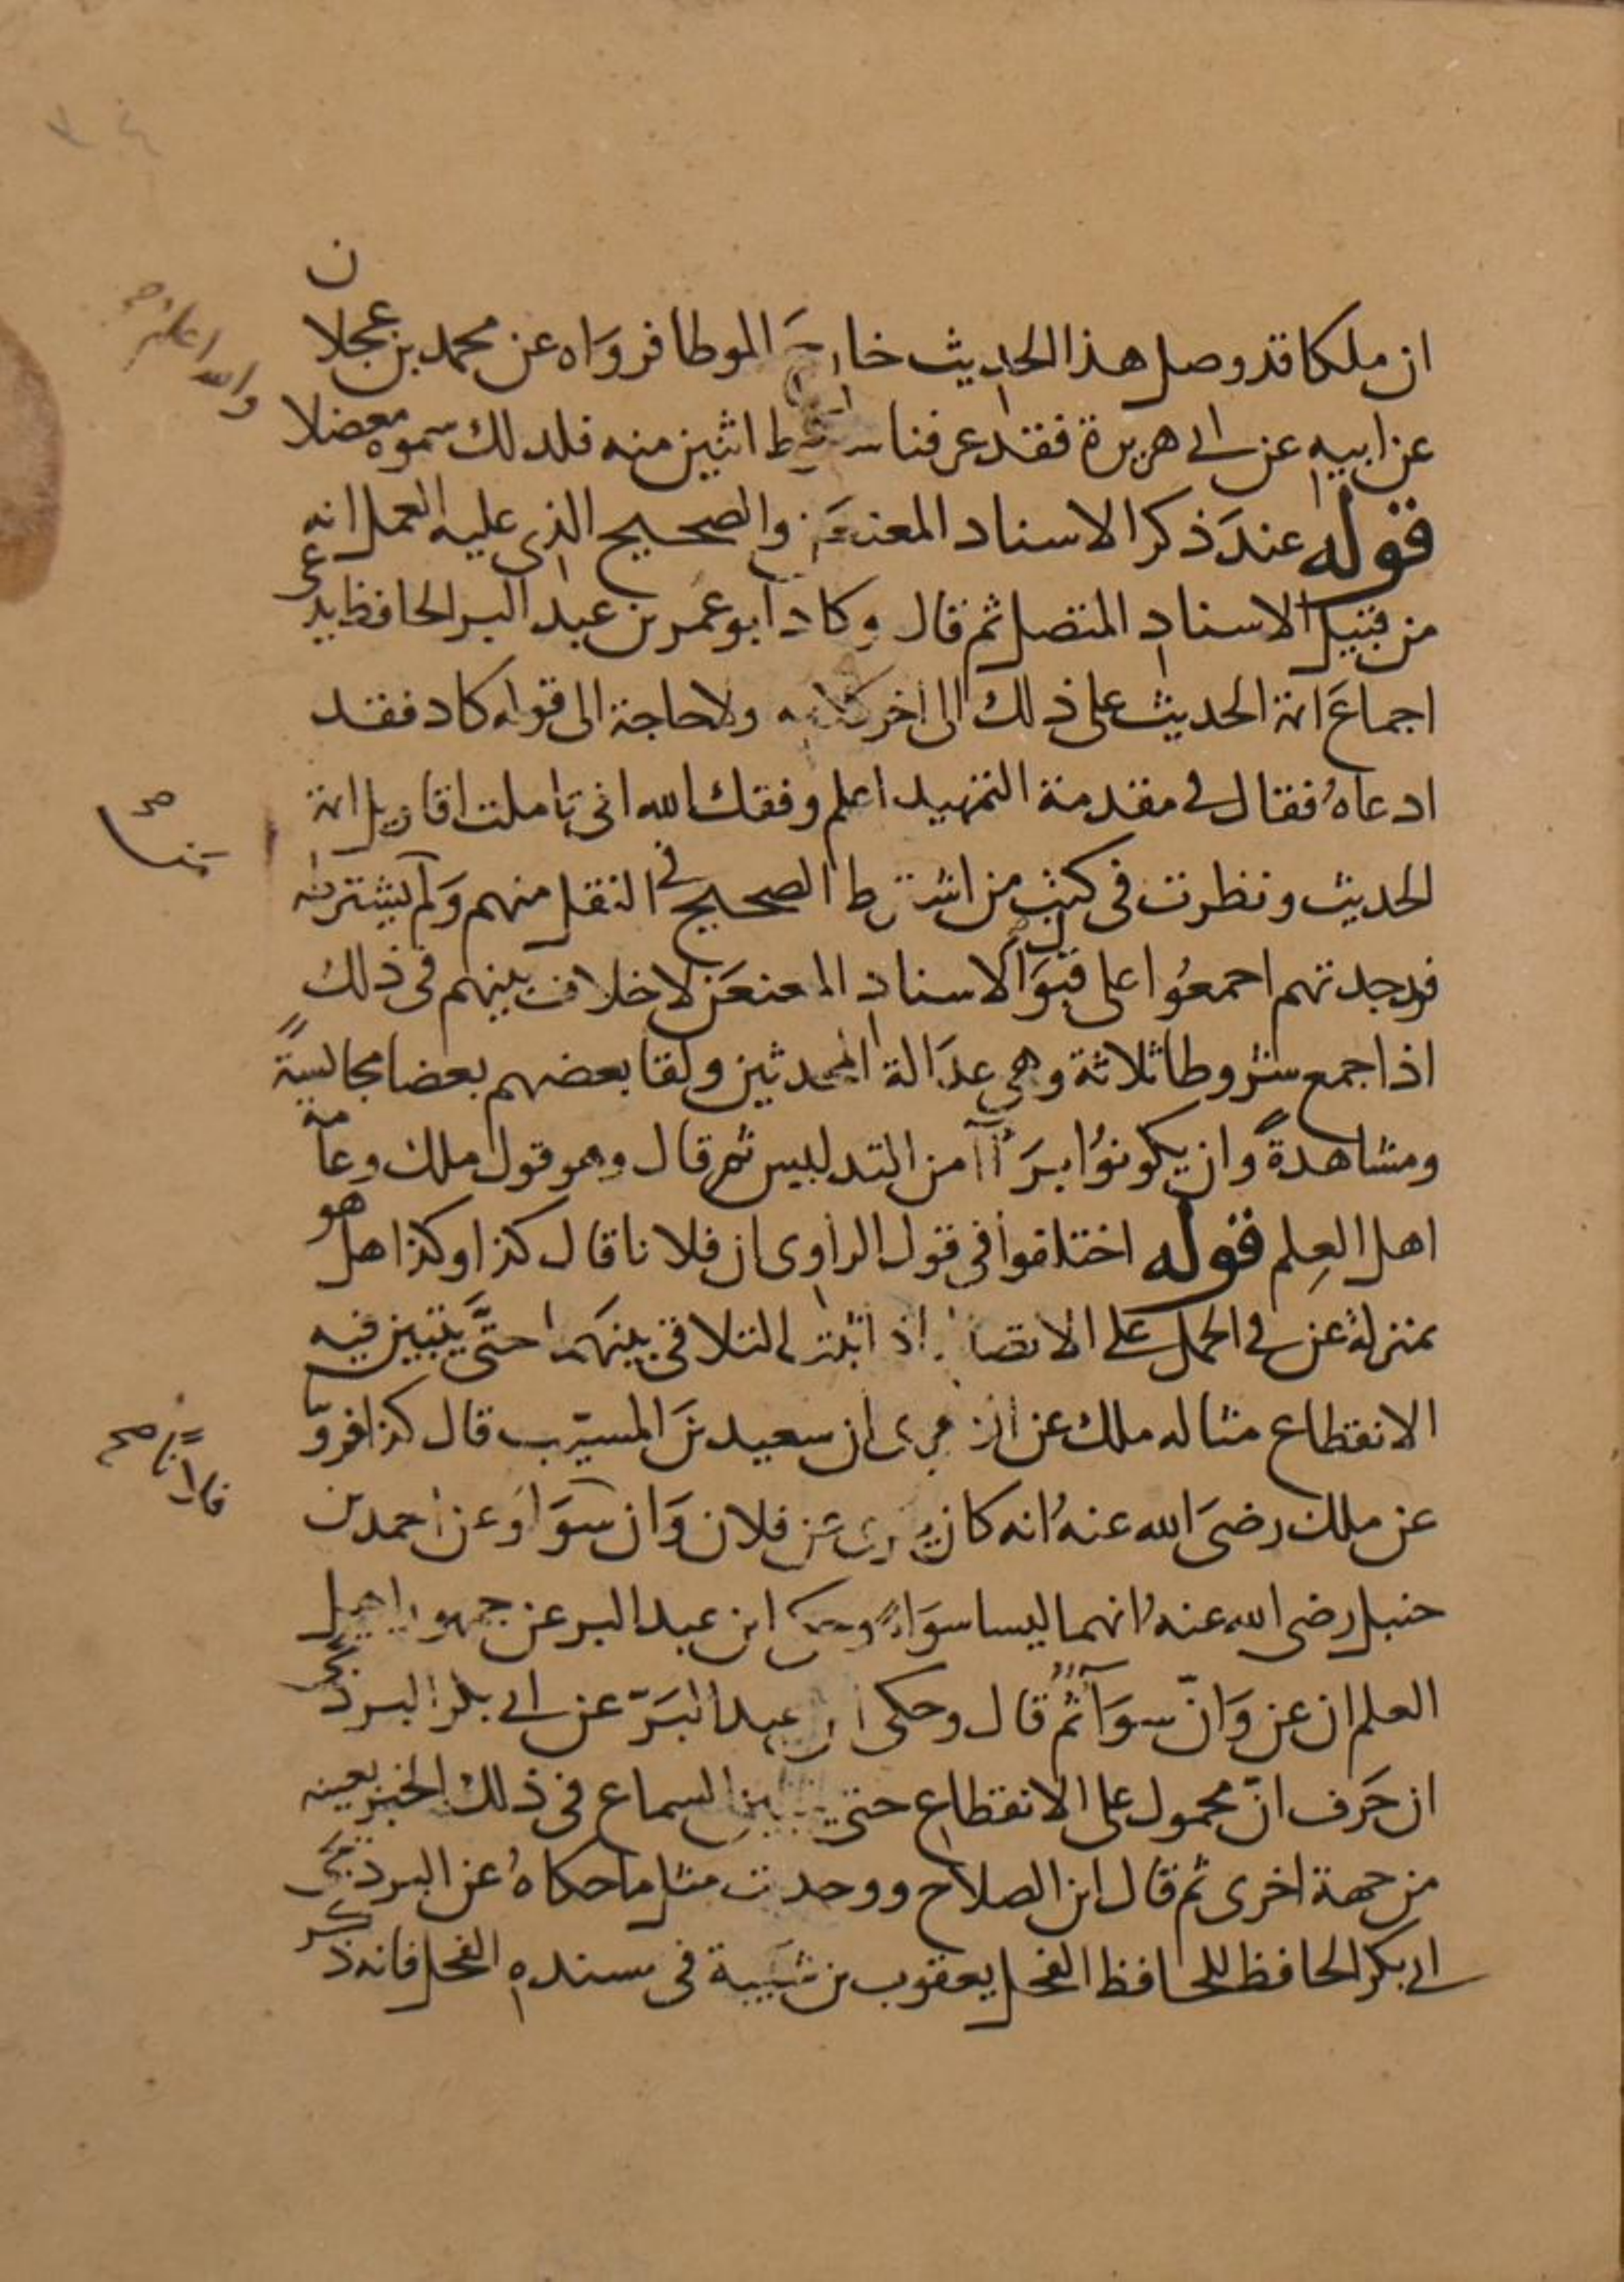 ان ملكا قد وصل هذا الحديث خارج الموطا فرواه عن محمد بن عجلان
عن ابيه عن ابى هريرة فقد عرفنا سقوط اثنين منه فلذلك سموه معضلا
والله اعلم صح
قوله عند ذكر الاسناد المعنعن والصحيح الذى عليه العمل انه
من قبيل الاسناد المتصل ثم قال وكاد ابو عمر بن عبد البر الحافظ يدعى
اجماع ائمة الحديث على ذلك الى اخر كلامه ولا حاجة الى قوله كاد فقد
ادعاه فقال فى مقدمة التمهيد اعلم وفقك الله انى تاملت اقاويل ائمة
الحديث ونظرت فى كتب من اشترط الصحيح فى النقل منهم ولم يشترطه
فوجدتهم اجمعوا على قبول الاسناد المعنعن لا خلاف بينهم فى ذلك
اذا جمع شروطا ثلاثة وهى عدالة المحدثين ولقا بعضهم بعضا مجالسةً
ومشاهدةً وان يكونوا برآآ من التدليس ثم قال وهو قول ملك وعامة
اهل العِلم قوله اختلفوا فى قول الراوى ان فلانا قال كذا وكذا هل هو
بمنزلة عن فى الحمل على الاتصال اذا ثبت التلاقى بينهما حتَّى يتبين فيه
الانقطاع مثاله ملك عن الزهرى ان سعيد بن المسيّب قال كذا فروّ
عن ملك رضى الله عنه انه كان يرى عن فلان وان سوَا وعن احمد بن
حنبل رضى الله عنه انهما ليسا سوَاءً وحكى ابن عبد البر عن جمهور اهل
العلم ان عن وَانّ سوَآ ثم قال وحكى ابن عبد البَرّ عن ابى بكر البرديجى
ان حَرف انّ محمول على الانقطاع حتى يتبين السماع فى ذلك الخبر بعينه
من جهة اخرى ثم قال ابن الصلاح ووجدت مثل ما حكاه عن البرديجى
ابى بكر الحافظ للحافظ الفحل يعقوب بن شيبة فى مسنده الفحل فانه ذكر